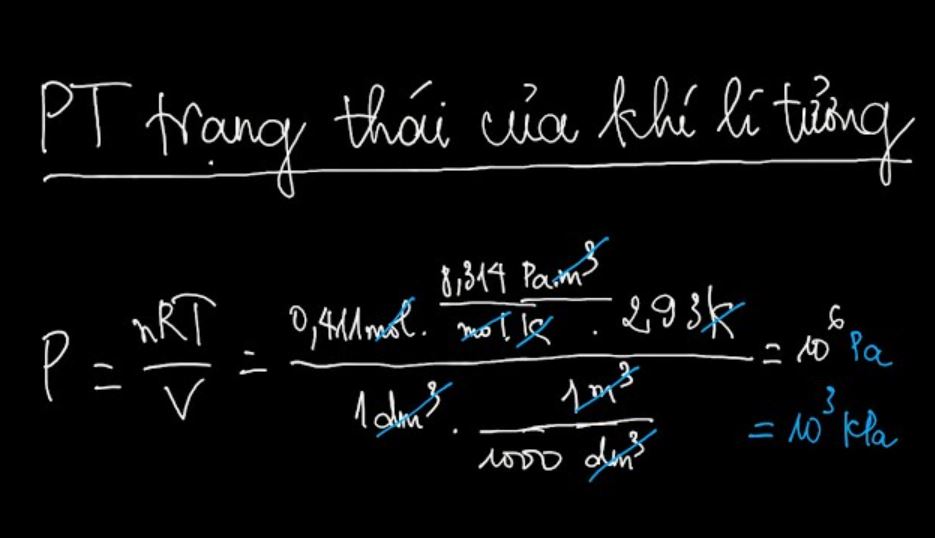 PT trạng thái của khí lí tưởng
P = nRT / V = 0,411mol . 8,314 Pa.m³ / mol.K . 293K / 1dm³ . 1m³ / 1000 dm³ = 10⁶ Pa
= 10³ kPa